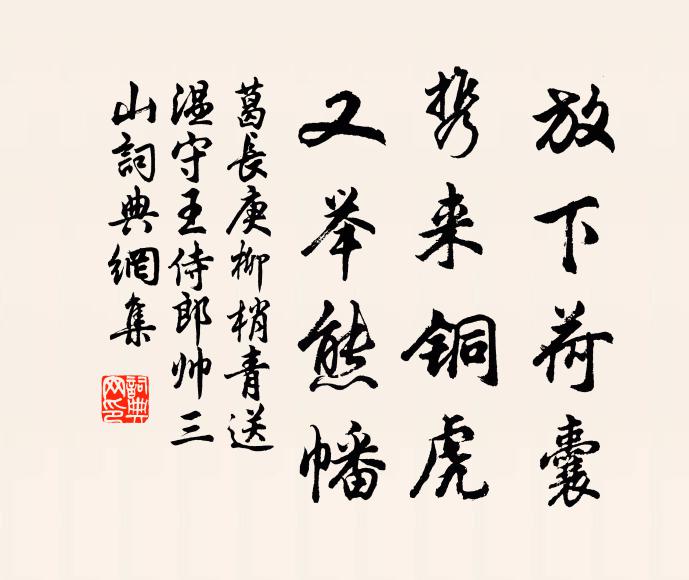 放下荷囊
携来铜虎
又举熊幡
葛長庚柳梢青送
温守王侍郎帅三
山詞典網集
詞典網印